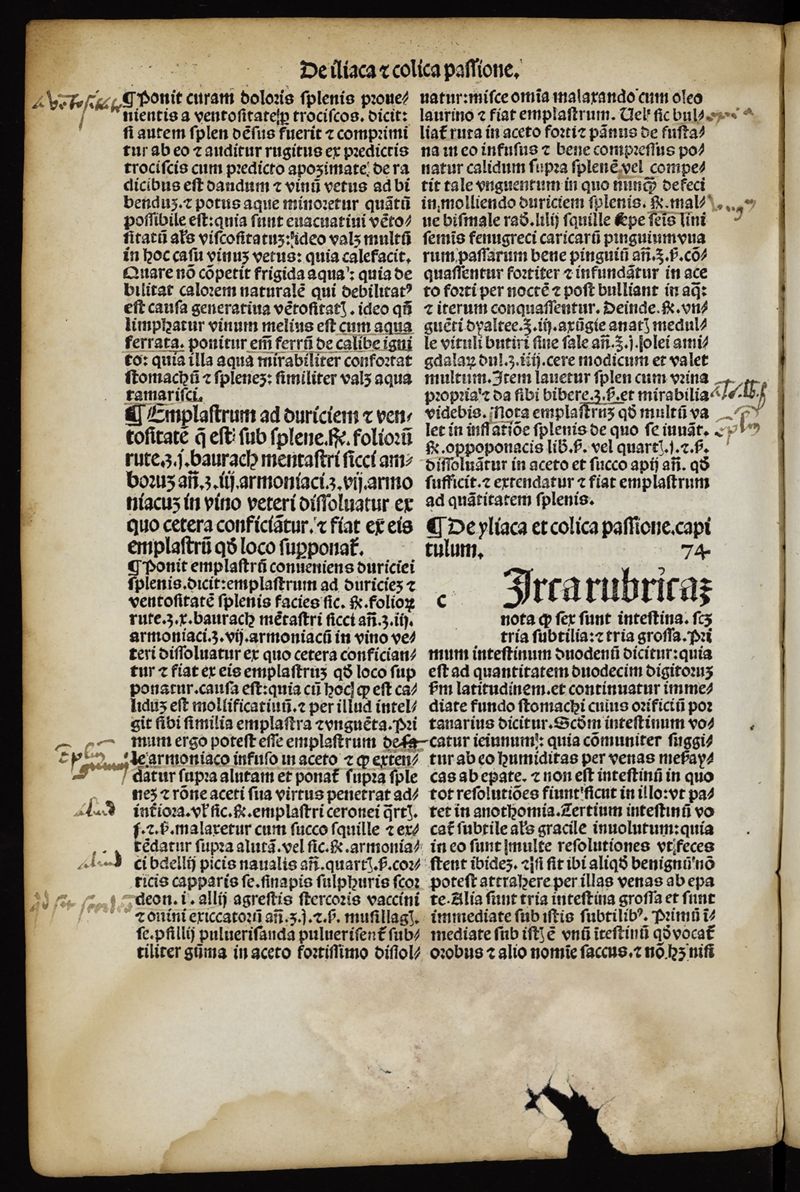 De iliaca ⁊ colica passione.
¶Ponit curam doloris splenis proue⸗
nientis a ventositate ꝓ trociscos. dicit:
si autem splen dēsus fuerit ⁊ comprimi
tur ab eo ⁊ auditur rugitus ex predictis
trociscis cum predicto apozimate: de ra
dicibus est dandum ⁊ vinū vetus ad bi
benduꝫ.⁊ potus aque minoretur quātū
possibile est: quia sunt euacuatiui vēto⸗
sitatū al's viscositatuꝫ: ideo valꝫ multū
in hoc casu vinuꝫ vetus: quia calefacit.
Quare nō cōpetit frigida aqua: quia de
bilitat calorem naturalē qui debilitat᷒
est causa generatiua vētositatꝭ. ideo qn̄
limphatur vinum melius est cum aqua
ferrata. ponitur em̄ ferrū de calibe igni
to: quia illa aqua mirabiliter confortat
stomachū ⁊ spleneꝫ: similiter valꝫ aqua
tamarisci.
¶Emplastrum ad duriciem ⁊ ven⸗
tositatē q̄ est sub splene.℞. foliorū
rute.ʒ.j. baurach mentastri sicci am⸗
boruꝫ an̄.ʒ.iij.armoniaci.ʒ.vij.armo
niacuꝫ in vino veteri dissoluatur ex
quo cetera conficiātur.⁊ fiat ex eis
emplastrū qd̄ loco supponat᷑.
¶Ponit emplastrū conueniens duriciei
splenis.dicit: emplastrum ad duricieꝫ ⁊
ventositatē splenis facies sic. ℞. folioꝝ
rute.ʒ.x. baurach mētastri sicci an̄.ʒ.iij.
armoniaci.ʒ.vij.armoniacū in vino ve⸗
teri dissoluatur ex quo cetera confician⸗
tur ⁊ fiat ex eis emplastruꝫ qd̄ loco sup
ponatur.causa est: quia cū hocꝭ ꝙ est ca⸗
liduꝫ est mollificatiuū.⁊ per illud intel⸗
git sibi similia emplastra ⁊ vnguēta. Pri
mum ergo potest esse emplastrum de fa
le armoniaco infuso in aceto ⁊ ꝙ exten⸗
datur supra alutam et ponat᷑ supra sple
neꝫ ⁊ rōne aceti sua virtus penetrat ad⸗
int᷑iora.vl' sic.℞.emplastri ceronei q̄rtꝭ.
ſ.⁊.ß.malaxetur cum succo squille ⁊ ex⸗
tēdatur supra alutā.vel sic.℞.armonia⸗
ci bdellij picis naualis an̄.quartꝭ.ß.cor⸗
ticis capparis se.sinapis sulphuris scor
deon.i.allij agrestis stercoris vaccini
⁊ ouini exiccatorū an̄.ʒ.j.⁊.ß. musillagꝭ.
se.psillij puluerisanda puluerisent᷑ sub⸗
tiliter gūma in aceto fortissimo dissol⸗
uatur: misce omīa malaxando cum oleo
laurino ⁊ fiat emplastrum. Uel' sic bul⸗
liat᷑ ruta in aceto forti ⁊ pānus de fusta⸗
na in eo infusus ⁊ bene compressus po⸗
natur calidum supra splenē vel compe⸗
tit tale vnguentum in quo nunꝙ defeci
in molliendo duriciem splenis.℞.mal⸗
ue bismale rad̄.lilij squille se̅pe seīs lini
semīs fenugreci caricarū pinguium vua
rum passarum bene pinguiū an̄.ʒ.ß.cō⸗
quassentur fortiter ⁊ infundātur in ace
to forti per noctē ⁊ post bulliant in aq̄:
⁊ iterum conquassentur. Deinde.℞.vn⸗
guēti dyaltee.ʒ.iij.axūgie anatꝭ medul⸗
le vituli butiri sine sale an̄.ʒ.j.olei ami⸗
gdalaꝝ dul.ʒ.iiij.cere modicum et valet
multum. Item lauetur splen cum vrina
propria ⁊ da sibi bibere.ʒ.ß.et mirabilia
videbis. Nota emplastruꝫ qd̄ multū va
let in inflatiōe splenis de quo se iuuāt.
℞.oppoponacis lib̄.ß. vel quartꝭ.j.⁊.ß.
dissoluātur in aceto et succo apij an̄. qd̄
sufficit.⁊ extendatur ⁊ fiat emplastrum
ad quātitatem splenis.
¶De yliaca et colica passione.capi
tulum. 74
c Irca rubricaꝫ
nota ꝙ sex sunt intestina. scꝫ
tria subtilia:⁊ tria grossa. Pri
mum intestinum duodenū dicitur: quia
est ad quantitatem duodecim digitoruꝫ
ẜm latitudinem.et continuatur imme⸗
diate fundo stomachi cuius orificiū por
tanarius dicitur. Scd̄m intestinum vo⸗
catur ieiunum: quia cōmuniter suggi⸗
tur ab eo humiditas per venas mesay⸗
cas ab epate. ⁊ non est intestinū in quo
tot resolutiōes fiunt sicut in illo: vt pa⸗
tet in anothomia. Tertium intestinū vo
cat᷑ subtile al's gracile inuolutum: quia
in eo sunt multe resolutiones vt feces
stent ibideꝫ.⁊ si sit ibi aliqd̄ benignū nō
potest attrahere per illas venas ab epa
te. Alia sunt tria intestina grossa et sunt
immediate sub istis subtilib᷒. Primū ī⸗
mediate sub istꝭ ē vnū ītestinū qd̄ vocat᷑
orobus ⁊ alio nomīe saccus.⁊ nō hꝫ nisi